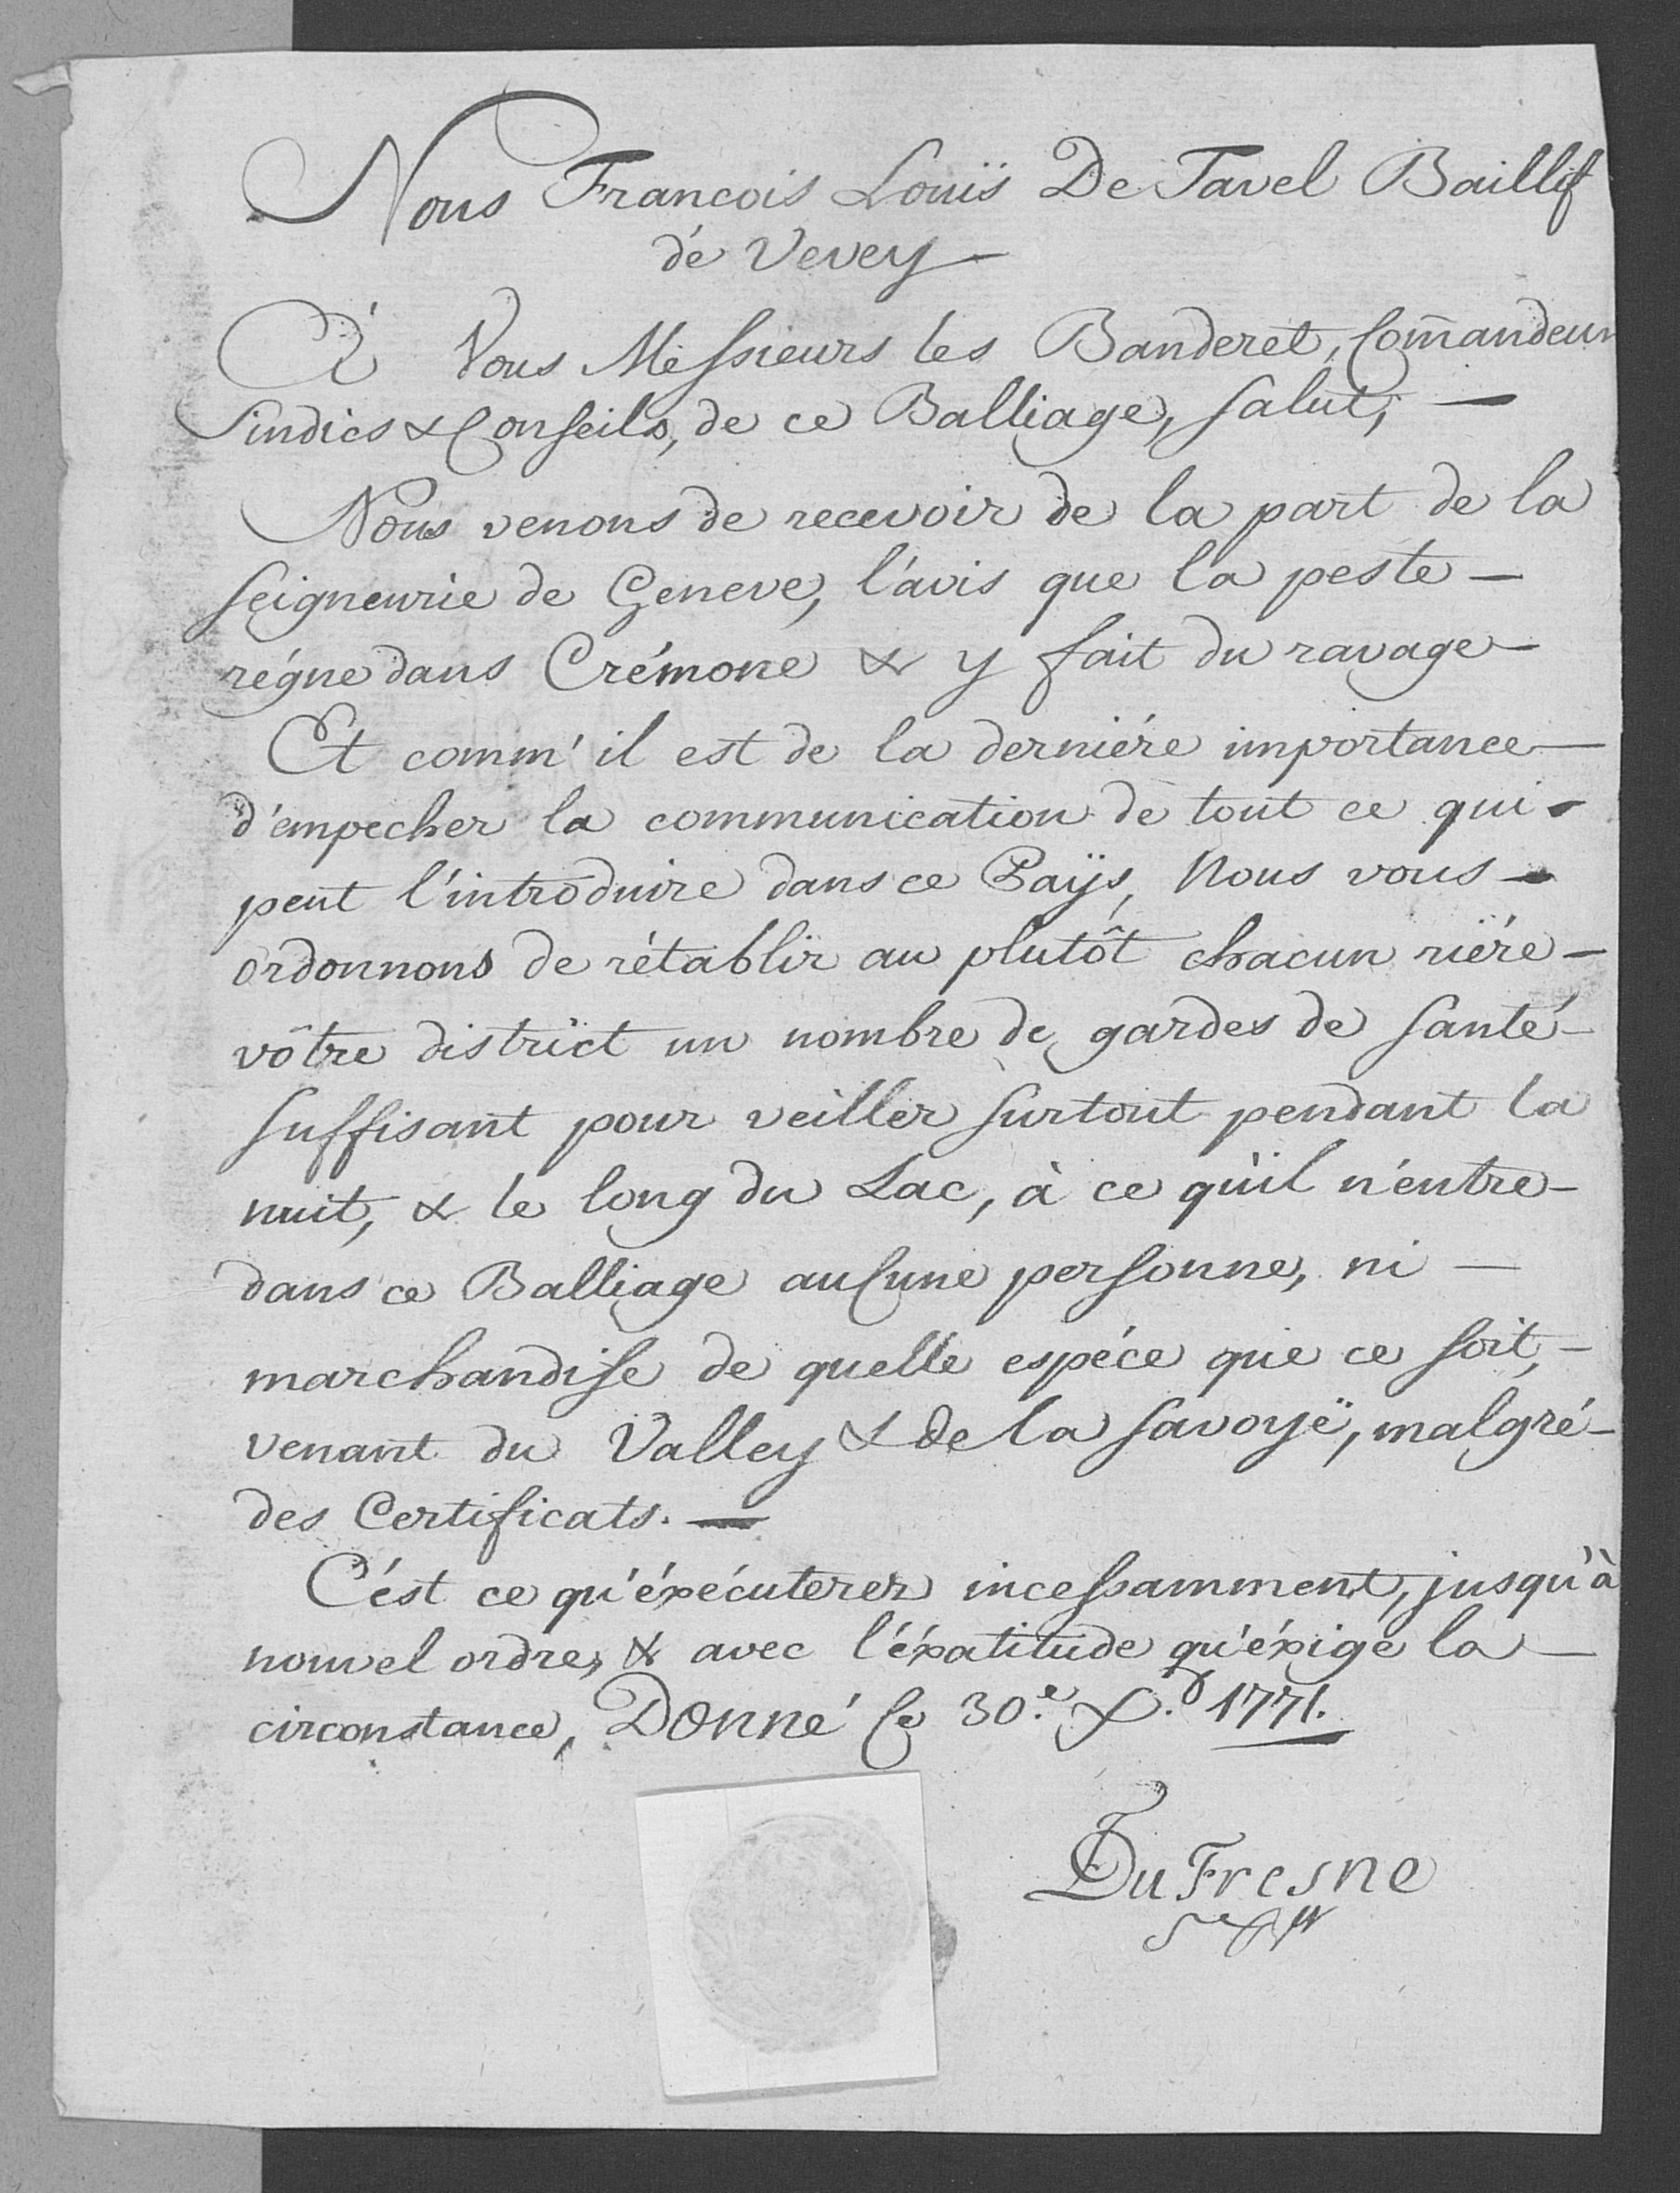 Nous Francois Louïs De Tavel Baillif
dé Vevey
À Vous Messieurs les Banderet, Com̃andeur
Sindics & Conseils, de ce Balliage, salut,
Nous venons de recevoir de la part de la
seigneurie de Geneve, l'avis que la peste
régne dans Crémone & y fait du ravage
Et comm' il est de la derniére importance
d'empecher la communication de tout ce qui
peut l'introduire dans ce Païjs, Nous vous
ordonnons de rétablir au plutôt chacun riére
vôtre district un nombre de gardes de santé
suffisant pour veiller surtout pendant la
nuit, & le long du Lac, à ce qu'il n'entre
dans ce Balliage aucune personne, ni
marchandise de quelle espéce que ce soit,
venant du Valley & de la Savoyë, malgré
des Certificats.
C'ést ce qu'éxécuterez incessamment, jusqu'à
nouvel ordre, & avec l'éxatitude qu'éxige la
circonstance, Donné ce 30.e X.b 1771.
DuFresne